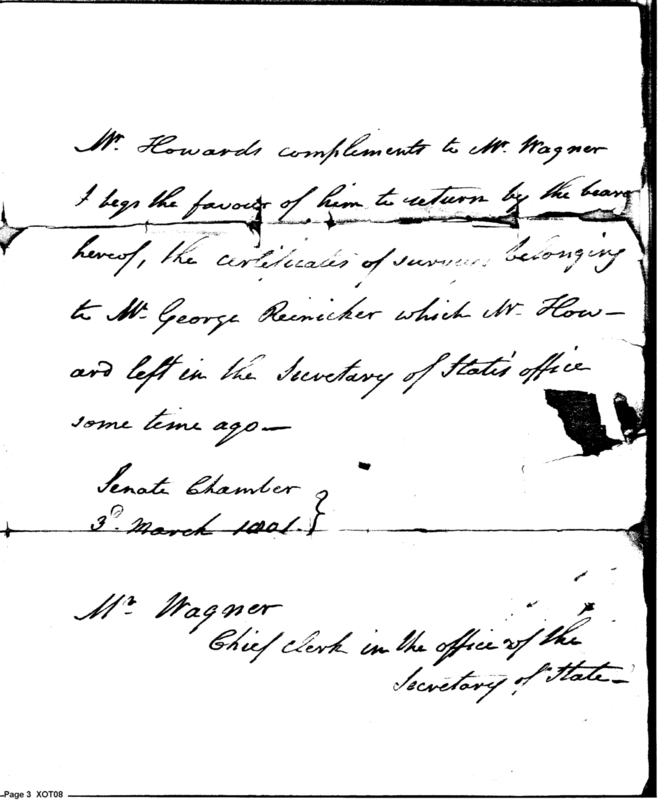 Mr. Howards compliments to Mr. Wagner
& begs the favour of him to return by the bearer
hereof, the certificates of surveys belonging
to Mr. George Reinicker which Mr. How-
ard left in the Secretary of State's office
some time ago—
Senate Chamber
3d. March 1801.
Mr. Wagner
Chief Clerk in the office of the
Secretary of State—
Page 3 XOT08